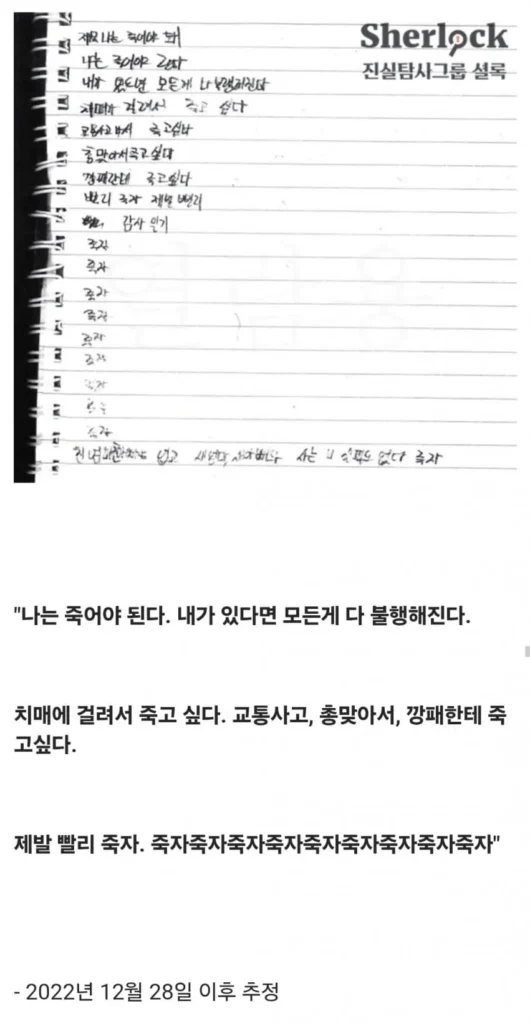 Sherlock
진실탐사그룹 셜록
나는 죽어야
내가 있다면 모든게 다 불행해진다
치매에 걸려서 죽고 싶다
교통사고 죽고싶다
총맞아서죽고싶다
깡패한테 죽고싶다
빨리 죽자 제발 빨리
죽자
죽자
죽자
죽자
죽자
죽자
죽자
죽자
없다 죽자
"나는 죽어야 된다. 내가 있다면 모든게 다 불행해진다.
치매에 걸려서 죽고 싶다. 교통사고, 총맞아서, 깡패한테 죽
고싶다.
제발 빨리 죽자. 죽자죽자죽자죽자죽자죽자죽자죽자죽자"
- 2022년 12월 28일 이후 추정